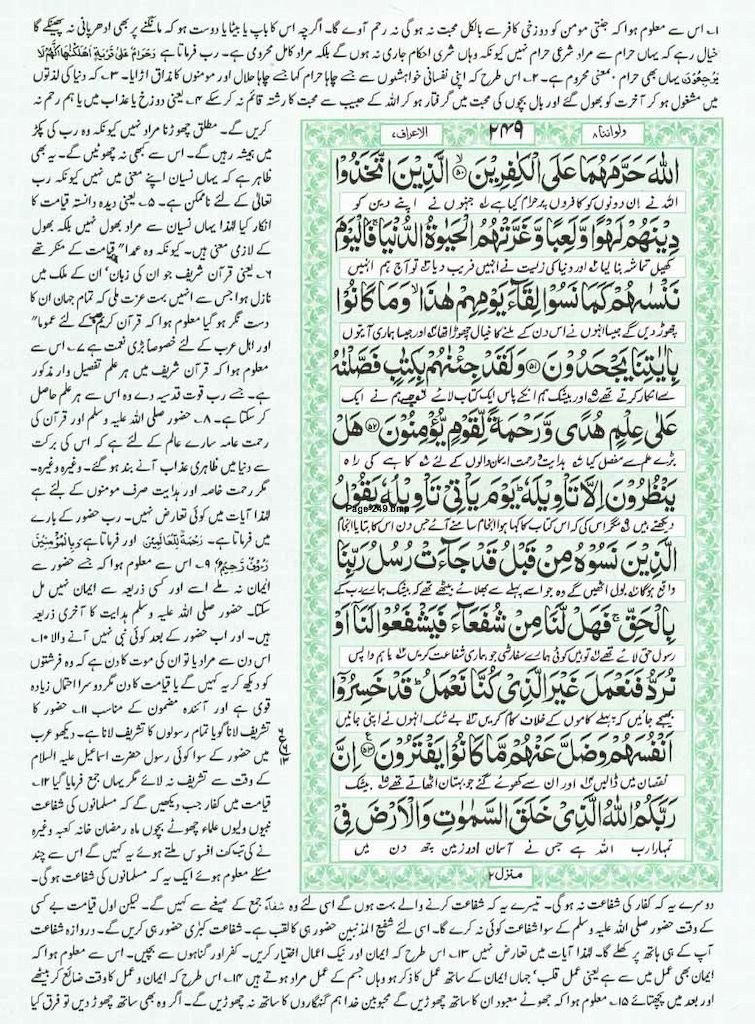 ۱۔ اس سے معلوم ہوا کہ جنتی مومن کو دوزخی کافر سے بالکل محبت نہ ہو گی نہ رحم آوے گا۔ اگرچہ اس کا باپ یا بیٹا یا دوست ہو کہ مانگنے پر بھی ادھر پانی نہ پھینکے گا
خیال رہے کہ یہاں حرام سے مراد شرعی حرام نہیں کیونکہ وہاں شرعی احکام جاری نہ ہوں گے بلکہ مراد کامل محرومی ہے۔ رب فرماتا ہے وَحَرَامٌ عَلٰی قَرْیَۃٍ اَھْلَکْنٰھَا اَنَّھُمْ لَا
یَرْجِعُوْنَ یہاں بھی حرام بمعنی محروم ہے۔ ۲۔ اس طرح کہ اپنی نفسانی خواہشوں سے جسے چاہا حرام کہا جسے چاہا حلال اور مومنوں کا مذاق اڑایا۔ ۳۔ کہ دنیا کی لذتوں
میں مشغول ہو کر آخرت کو بھول گئے اور بال بچوں کی محبت میں گرفتار ہو کر اللہ کے حبیب سے محبت کا رشتہ قائم نہ کر سکے ۴۔ یعنی دوزخ یا عذاب میں یا ہم رحم نہ
ولواننا ۸
۲۴۹
الاعراف ۷
اللّٰهَ حَرَّمَهُمَا عَلَى الْكٰفِرِیْنَ ۙ۵۰ الَّذِیْنَ اتَّخَذُوْا
اللہ نے ان دونوں کو کافروں پر حرام کیا ہے جنہوں نے اپنے دین کو
دِیْنَهُمْ لَهْوًا وَّلَعِبًا وَّغَرَّتْهُمُ الْحَیٰوةُ الدُّنْیَا ۚ فَالْیَوْمَ
کھیل تماشہ بنا لیا اور دنیا کی زیست نے انہیں فریب دیا تو آج ہم انہیں
نَنْسٰهُمْ كَمَا نَسُوْا لِقَآءَ یَوْمِهِمْ هٰذَا ۙ وَمَا كَانُوْا
چھوڑ دیں گے جیسا انہوں نے اس دن کے ملنے کا خیال چھوڑا تھا اور جیسا ہماری آیتوں
بِاٰیٰتِنَا یَجْحَدُوْنَ ۵۱ وَلَقَدْ جِئْنٰهُمْ بِكِتٰبٍ فَصَّلْنٰهُ
سے انکار کرتے تھے اور بیشک ہم انکے پاس ایک کتاب لائے جسے ہم نے ایک
عَلٰى عِلْمٍ هُدًى وَّرَحْمَةً لِّقَوْمٍ یُّؤْمِنُوْنَ ۵۲ هَلْ
بڑے علم سے مفصل کیا ہدایت و رحمت ایمان والوں کے لئے کاہے کی راہ
یَنْظُرُوْنَ اِلَّا تَاْوِیْلَهٗ ؕ یَوْمَ یَاْتِیْ تَاْوِیْلُهٗ یَقُوْلُ
Page-249.bmp
دیکھتے ہیں مگر اس کی کہ اس کتاب کا کہا ہوا انجام سامنے آئے جس دن اس کا بتایا انجام
الَّذِیْنَ نَسُوْهُ مِنْ قَبْلُ قَدْ جَآءَتْ رُسُلُ رَبِّنَا
واقع ہوگا بول اٹھیں گے وہ جو اسے پہلے سے بھلائے بیٹھے تھے کہ بیشک ہمارے رب کے
بِالْحَقِّ ۚ فَهَلْ لَّنَا مِنْ شُفَعَآءَ فَیَشْفَعُوْا لَنَاۤ اَوْ
رسول حق لائے تھے تو ہیں کوئی ہمارے سفارشی جو ہماری شفاعت کریں یا ہم واپس
نُرَدُّ فَنَعْمَلَ غَیْرَ الَّذِیْ كُنَّا نَعْمَلُ ؕ قَدْ خَسِرُوْۤا
بھیجے جائیں کہ پہلے کاموں کے خلاف کام کریں بے شک انہوں نے اپنی جانیں
اَنْفُسَهُمْ وَضَلَّ عَنْهُمْ مَّا كَانُوْا یَفْتَرُوْنَ ۵۳ اِنَّ
نقصان میں ڈالیں اور ان سے کھوئے گئے جو بہتان اٹھاتے تھے بیشک
رَبَّكُمُ اللّٰهُ الَّذِیْ خَلَقَ السَّمٰوٰتِ وَالْاَرْضَ فِیْ
تمہارا رب اللہ ہے جس نے آسمان اور زمین چھ دن میں
منزل ۲
کریں گے۔ مطلق چھوڑنا مراد نہیں کیونکہ وہ رب کی پکڑ
میں ہمیشہ رہیں گے۔ اس سے کبھی نہ چھوٹیں گے۔ یہ بھی
ظاہر ہے کہ یہاں نسیان اپنے معنی میں نہیں کیونکہ رب
تعالٰی کے لئے ناممکن ہے۔ ۵۔ یعنی دیدہ دانستہ قیامت کا
انکار کیا لہٰذا یہاں نسیان سے مراد بھول نہیں بلکہ بھول
کے لازمی معنی ہیں۔ کیونکہ وہ عمدا" قیامت کے منکر تھے
۶۔ یعنی قرآن شریف جو ان کی زبان' ان کے ملک میں
نازل ہوا جس سے انہیں بہت عزت ملی کہ تمام جہان ان کا
دست نگر ہو گیا معلوم ہوا کہ قرآن کریم کے لئے عموما"
اور اہل عرب کے لئے خصوصاً بڑی نعمت ہے ۷۔ اس سے
معلوم ہوا کہ قرآن شریف میں ہر علم تفصیل وار مذکور
ہے۔ جسے رب قوت قدسیہ دے وہ اس سے ہر علم حاصل
کر سکتا ہے۔ ۸۔ حضور صلی اللہ علیہ وسلم اور قرآن کی
رحمت عامہ سارے عالم کے لئے ہے کہ اس کی برکت
سے دنیا میں ظاہری عذاب آنے بند ہو گئے۔ وغیرہ وغیرہ۔
مگر رحمت خاصہ اور ہدایت صرف مومنوں کے لئے ہے
لہٰذا آیات میں کوئی تعارض نہیں۔ رب حضور کے بارے
میں فرماتا ہے۔ رَحْمَۃً لِّلْعَالَمِیْنَ اور فرماتا ہے وَبِالْمُؤْمِنِیْنَ
رَؤُوْفٌ رَّحِیْمٌ ۹۔ اس سے معلوم ہوا کہ جسے حضور سے
ایمان نہ ملے اسے اور کسی ذریعہ سے ایمان نہیں مل
سکتا۔ حضور صلی اللہ علیہ وسلم ہدایت کا آخری ذریعہ
ہیں۔ اور اب حضور کے بعد کوئی نبی نہیں آنے والا ۱۰۔
اس دن سے مراد یا تو ان کی موت کا دن ہے کہ وہ فرشتوں
کو دیکھ کر یہ کہیں گے یا قیامت کا دن مگر دوسرا احتمال زیادہ
قوی ہے اور آئندہ مضمون کے مناسب ۱۱۔ حضور کا
تشریف لانا گویا تمام رسولوں کا تشریف لانا ہے۔ دیکھو عرب
میں حضور کے سوا کوئی رسول حضرت اسماعیل علیہ السلام
کے وقت سے تشریف نہ لائے مگر یہاں جمع فرمایا گیا ۱۲۔
قیامت میں کفار جب دیکھیں گے کہ مسلمانوں کی شفاعت
نبیوں ولیوں علماء چھوٹے بچوں ماہ رمضان خانہ کعبہ وغیرہ
نے کی تب کف افسوس ملتے ہوئے یہ کہیں گے اس سے چند
مسئلے معلوم ہوئے ایک یہ کہ مسلمانوں کی شفاعت ہو گی۔
دوسرے یہ کہ کفار کی شفاعت نہ ہو گی۔ تیسرے یہ کہ شفاعت کرنے والے بہت ہوں گے اسی لئے وہ شفعآء جمع کے صیغے سے کہیں گے۔ لیکن اول قیامت بے کسی
کے وقت حضور صلی اللہ علیہ وسلم کے سوا شفاعت کوئی نہ کرے گا۔ اسی لئے شفیع المذنبین حضور ہی کا لقب ہے۔ شفاعت کبرٰی حضور ہی کریں گے۔ دروازہ شفاعت
آپ کے ہی ہاتھ پر کھلے گا۔ لہٰذا آیات میں تعارض نہیں ۱۳۔ اس طرح کہ ایمان اور نیک اعمال اختیار کریں۔ کفر اور گناہوں سے بچیں۔ اس سے معلوم ہوا کہ
ایمان بھی عمل میں سے ہے یعنی عمل قلب' جہاں ایمان کے ساتھ عمل کا ذکر ہو وہاں جسم کے عمل مراد ہوتے ہیں ۱۴۔ اس طرح کہ ایمان و عمل کا وقت ضائع کر بیٹھے
اور بعد میں پچھتائے ۱۵۔ معلوم ہوا کہ جھوٹے معبود ان کا ساتھ چھوڑیں گے محبوبین خدا ہم گنہگاروں کا ساتھ نہ چھوڑیں گے۔ اگر وہ بھی ساتھ چھوڑ دیں تو فرق کیا